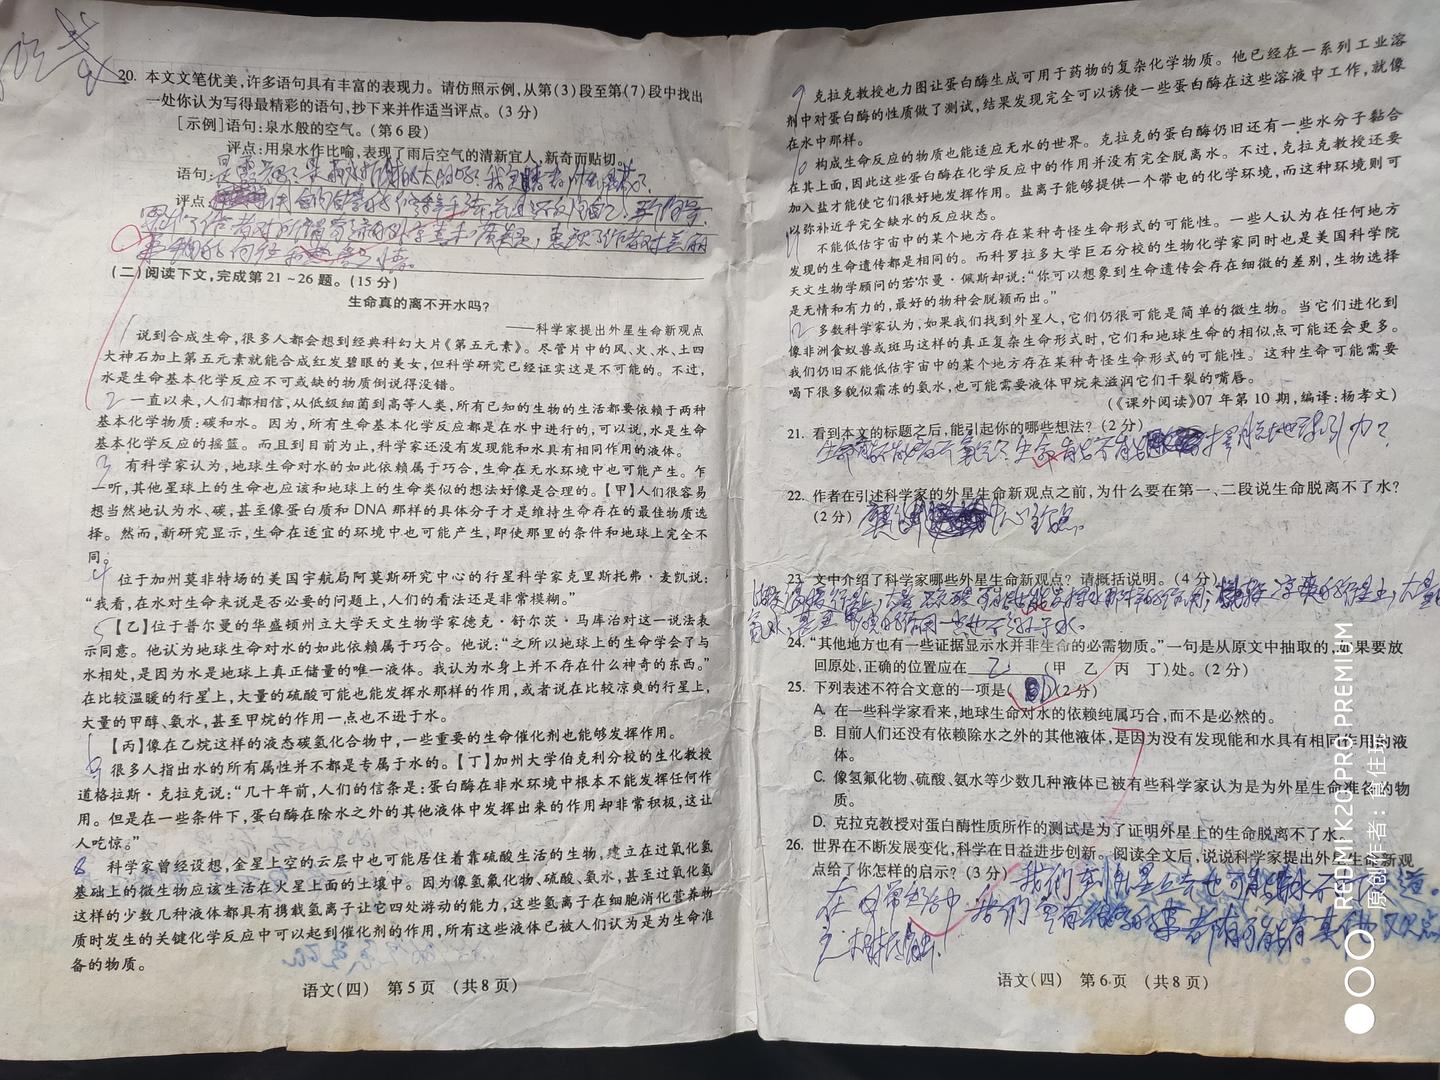 20. 本文文笔优美,许多语句具有丰富的表现力。请仿照示例,从第(3)段至第(7)段中找出
一处你认为写得最精彩的语句,抄下来并作适当评点。(3分)
[示例]语句:泉水般的空气。(第6段)
评点:用泉水作比喻,表现了雨后空气的清新宜人,新奇而贴切。
语句:
评点:
(二)阅读下文,完成第21~26题。(15分)
生命真的离不开水吗?
——科学家提出外星生命新观点
1 说到合成生命,很多人都会想到经典科幻大片《第五元素》。尽管片中的风、火、水、土四
大神石加上第五元素就能合成红发碧眼的美女,但科学研究已经证实这是不可能的。不过,
水是生命基本化学反应不可或缺的物质倒说得没错。
2 一直以来,人们都相信,从低级细菌到高等人类,所有已知的生物的生活都要依赖于两种
基本化学物质:碳和水。因为,所有生命基本化学反应都是在水中进行的,可以说,水是生命
基本化学反应的摇篮。而且到目前为止,科学家还没有发现能和水具有相同作用的液体。
3 有科学家认为,地球生命对水的如此依赖属于巧合,生命在无水环境中也可能产生。乍
一听,其他星球上的生命也应该和地球上的生命类似的想法好像是合理的。【甲】人们很容易
想当然地认为水、碳,甚至像蛋白质和DNA那样的具体分子才是维持生命存在的最佳物质选
择。然而,新研究显示,生命在适宜的环境中也可能产生,即使那里的条件和地球上完全不
同。
4 位于加州莫非特场的美国宇航局阿莫斯研究中心的行星科学家克里斯托弗·麦凯说:
“我看,在水对生命来说是否必要的问题上,人们的看法还是非常模糊。”
5 【乙】位于普尔曼的华盛顿州立大学天文生物学家德克·舒尔茨·马库治对这一说法表
示同意。他认为地球生命对水的如此依赖属于巧合。他说:“之所以地球上的生命学会了与
水相处,是因为水是地球上真正储量的唯一液体。我认为水身上并不存在什么神奇的东西。”
在比较温暖的行星上,大量的硫酸可能也能发挥水那样的作用,或者说在比较凉爽的行星上,
大量的甲醇、氨水,甚至甲烷的作用一点也不逊于水。
【丙】像在乙烷这样的液态碳氢化合物中,一些重要的生命催化剂也能够发挥作用。
很多人指出水的所有属性并不都是专属于水的。【丁】加州大学伯克利分校的生化教授
道格拉斯·克拉克说:“几十年前,人们的信条是:蛋白酶在非水环境中根本不能发挥任何作
用。但是在一些条件下,蛋白酶在除水之外的其他液体中发挥出来的作用却非常积极,这让
人吃惊。”
8 科学家曾经设想,金星上空的云层中也可能居住着靠硫酸生活的生物,建立在过氧化氢
基础上的微生物应该生活在火星上面的土壤中。因为像氢氟化物、硫酸、氨水,甚至过氧化氢
这样的少数几种液体都具有携载氢离子让它四处游动的能力,这些氢离子在细胞消化营养物
质时发生的关键化学反应中可以起到催化剂的作用,所有这些液体已被人们认为是为生命准
备的物质。
语文(四) 第5页 (共8页)
9 克拉克教授也力图让蛋白酶生成可用于药物的复杂化学物质。他已经在一系列工业溶
剂中对蛋白酶的性质做了测试,结果发现完全可以诱使一些蛋白酶在这些溶液中工作,就像
在水中那样。
10 构成生命反应的物质也能适应无水的世界。克拉克的蛋白酶仍旧还有一些水分子黏合
在其上面,因此这些蛋白酶在化学反应中的作用并没有完全脱离水。不过,克拉克教授还要
加入盐才能使它们很好地发挥作用。盐离子能够提供一个带电的化学环境,而这种环境则可
以弥补近乎完全缺水的反应状态。
11 不能低估宇宙中的某个地方存在某种奇怪生命形式的可能性。一些人认为在任何地方
发现的生命遗传都是相同的。而科罗拉多大学巨石分校的生物化学家同时也是美国科学院
天文生物学顾问的若尔曼·佩斯却说:“你可以想象到生命遗传会存在细微的差别,生物选择
是无情和有力的,最好的物种会脱颖而出。”
12 多数科学家认为,如果我们找到外星人,它们仍很可能是简单的微生物。当它们进化到
像非洲食蚁兽或斑马这样的真正复杂生命形式时,它们和地球生命的相似点可能还会更多。
我们仍旧不能低估宇宙中的某个地方存在某种奇怪生命形式的可能性。这种生命可能需要
喝下很多貌似霜冻的氨水,也可能需要液体甲烷来滋润它们干裂的嘴唇。
(《课外阅读》07年第10期,编译:杨孝文)
21. 看到本文的标题之后,能引起你的哪些想法?(2分)
22. 作者在引述科学家的外星生命新观点之前,为什么要在第一、二段说生命脱离不了水?
(2分)
23. 文中介绍了科学家哪些外星生命新观点?请概括说明。(4分)
24. “其他地方也有一些证据显示水并非生命的必需物质。”一句是从原文中抽取的,如果要放
回原处,正确的位置应在 乙 (甲 乙 丙 丁)处。(2分)
25. 下列表述不符合文意的一项是( D )(2分)
A. 在一些科学家看来,地球生命对水的依赖纯属巧合,而不是必然的。
B. 目前人们还没有依赖除水之外的其他液体,是因为没有发现能和水具有相同作用的液
体。
C. 像氢氟化物、硫酸、氨水等少数几种液体已被有些科学家认为是为外星生命准备的物
质。
D. 克拉克教授对蛋白酶性质所作的测试是为了证明外星上的生命脱离不了水
26. 世界在不断发展变化,科学在日益进步创新。阅读全文后,说说科学家提出外星生命新观
点给了你怎样的启示?(3分)
语文(四) 第6页 (共8页)
REDMI K20 PRO PREMIUM